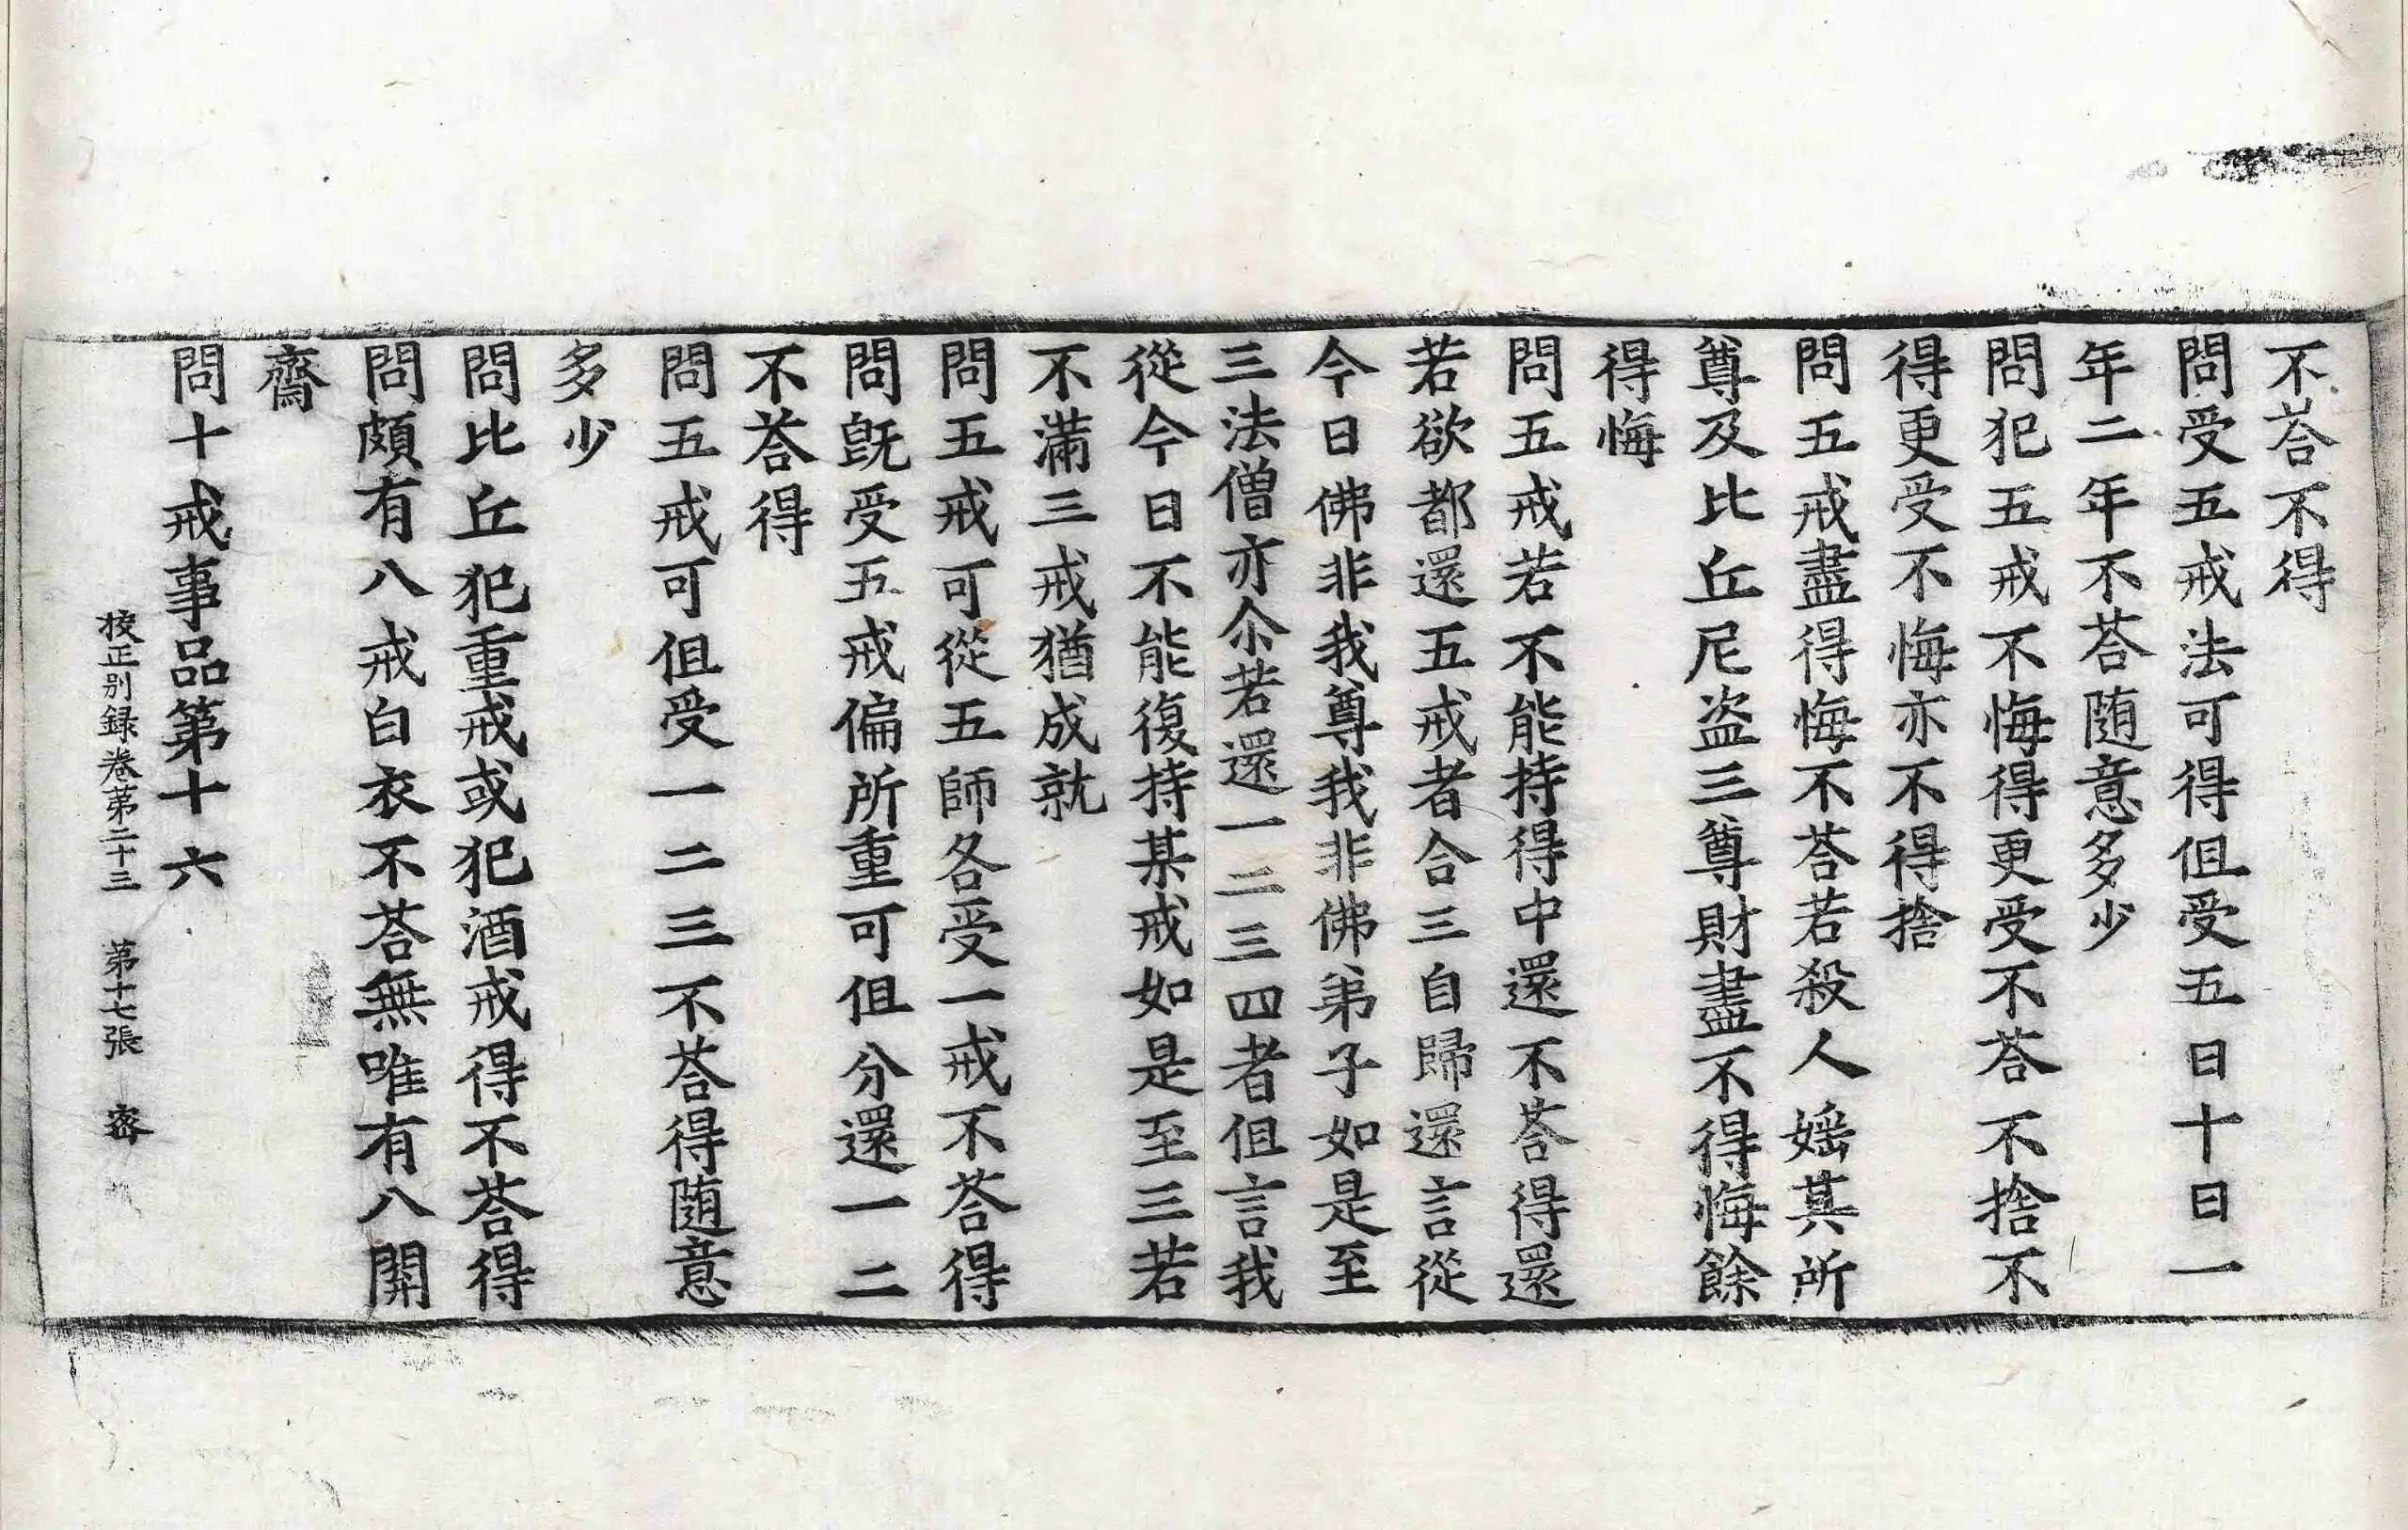 不荅不得
問受五戒法可得但受五日十日一
年二年不荅随意多少
問犯五戒不悔得更受不荅不捨不
得更受不悔亦不得捨
問五戒盡得悔不荅若殺人婬其所
尊及比丘尼盗三尊財盡不得悔餘
得悔
問五戒若不能持得中還不荅得還
若欲都還五戒者合三自歸還言從
今日佛非我尊我非佛弟子如是至
三法僧亦尒若還一二三四者但言我
從今日不能復持某戒如是至三若
不滿三戒猶成就
問五戒可從五師各受一戒不荅得
問旣受五戒偏所重可但分還一二
不荅得
問五戒可但受一二三不荅得随意
多少
問比丘犯重戒或犯酒戒得不荅得
問頗有八戒白衣不荅無唯有八關
齋
問十戒事品第十六
挍正別録卷苐二十三 苐十七張 宻